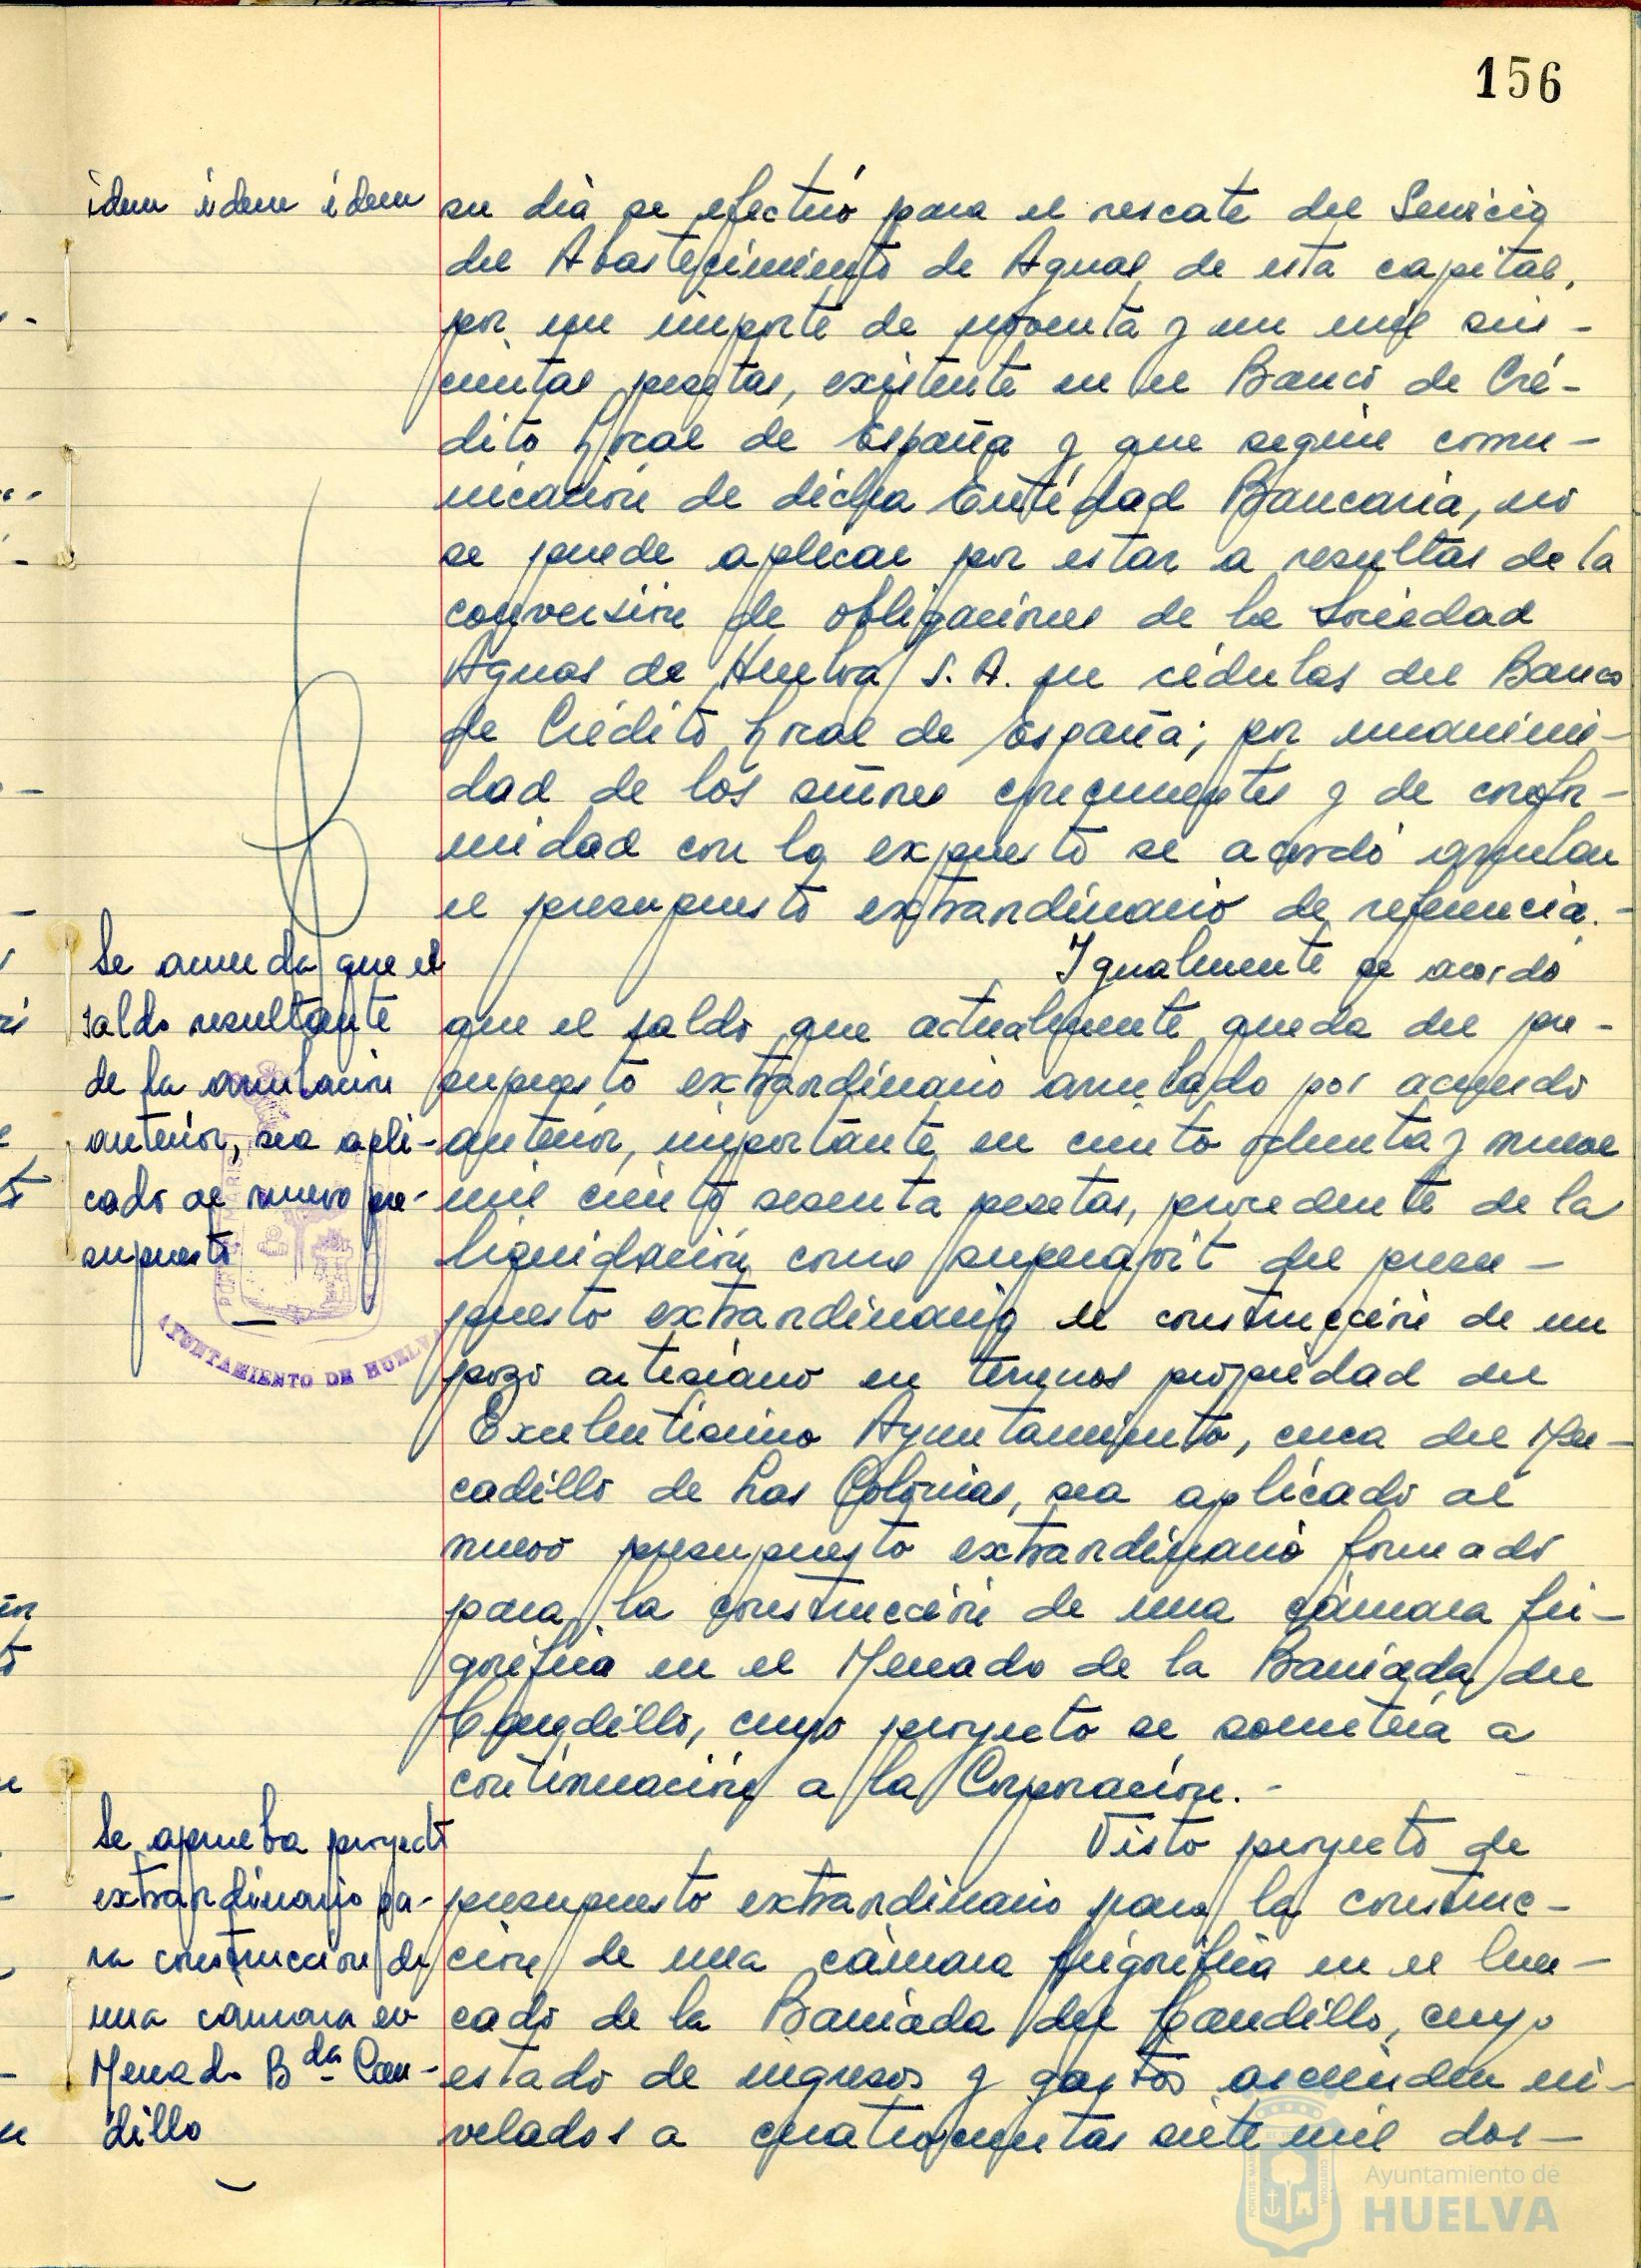 156
idem idem idem
su día se efectuó para el rescate del Servicio
del Abastecimiento de Aguas de esta capital,
por un importe de noventa y un mil seis-
cientas pesetas, existente en el Banco de Cré-
dito Local de España y que según comu-
nicación de dicha Entidad Bancaria, no
se puede aplicar por estar a resultas de la
conversión de obligaciones de la Sociedad
Aguas de Huelva S. A. en cédulas del Banco
de Crédito Local de España; por unanimi-
dad de los señores concurrentes y de confor-
midad con lo expuesto se acordó anular
el presupuesto extraordinario de referencia.-
Se acuerda que el
saldo resultante
de la anulación
anterior, sea apli-
cado al nuevo pre-
supuesto
Igualmente se acordó
que el saldo que actualmente queda del pre-
supuesto extraordinario anulado por acuerdo
anterior, importante en ciento ochenta y nueve
mil ciento sesenta pesetas, procedente de la
liquidación como superavit del presu-
puesto extraordinario de construcción de un
pozo artesiano en terrenos propiedad del
Excelentísimo Ayuntamiento, cerca del Mer-
cadillo de Las Colonias, sea aplicado al
nuevo presupuesto extraordinario formado
para la construcción de una cámara fri-
gorífica en el Mercado de la Barriada del
Caudillo, cuyo proyecto se sometería a
continuación a la Corporación.-
Se aprueba proyecto
extraordinario pa-
ra construcción de
una cámara en
Mercado Bda Cau-
dillo
Visto proyecto de
presupuesto extraordinario para la construc-
ción de una cámara frigorífica en el Mer-
cado de la Barriada del Caudillo, cuyo
estado de ingresos y gastos ascienden ni-
velados a cuatrocientas siete mil dos-
AYUNTAMIENTO DE HUELVA
Ayuntamiento de
HUELVA